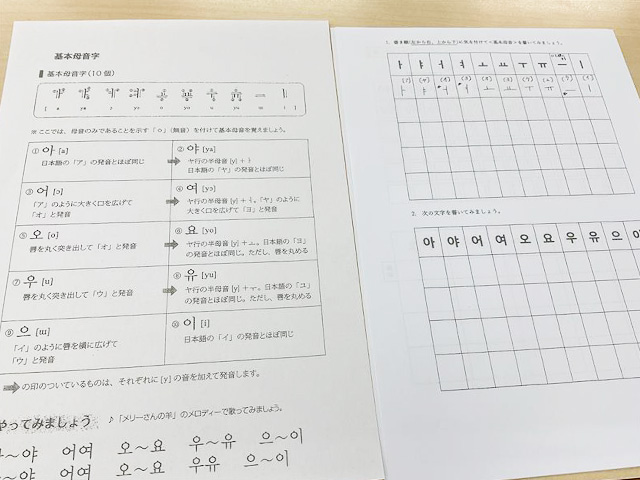 基本母音字
基本母音字(10個)
※ ここでは、母音のみであることを示す「ㅇ」(無音)を付けて基本母音を覚えましょう。
① 아 [a]
日本語の「ア」の発音とほぼ同じ
② 야 [ya]
ヤ行の半母音 [y] + ㅏ
日本語の「ヤ」の発音とほぼ同じ
③ 어 [ɔ]
「ア」のように大きく口を広げて
「オ」と発音
④ 여 [yɔ]
ヤ行の半母音 [y] + ㅓ。「ヤ」のように
大きく口を広げて「ヨ」と発音
⑤ 오 [o]
唇を丸く突き出して「オ」と発音
⑥ 요 [yo]
ヤ行の半母音 [y] + ㅗ。日本語の「ヨ」
の発音とほぼ同じ。ただし、唇を丸める
⑦ 우 [u]
唇を丸く突き出して「ウ」と発音
⑧ 유 [yu]
ヤ行の半母音 [y] + ㅜ。日本語の「ユ」
の発音とほぼ同じ。ただし、唇を丸める
⑨ 으 [ɯ]
「イ」のように唇を横に広げて
「ウ」と発音
⑩ 이 [i]
日本語の「イ」の発音とほぼ同じ
の印のついているものは、それぞれに [y] の音を加えて発音します。
やってみましょう
♪「メリーさんの羊」のメロディーで歌ってみましょう。
～야 어여 오～요 우～유 으～이
～야 어여 오～요 우유 으～이
1. 書き順(左から右、上から下)に気を付けて基本母音を書いてみましょう。
ㅏ ㅑ ㅓ ㅕ ㅗ ㅛ ㅜ ㅠ ㅡ ㅣ
2. 次の文字を書いてみましょう。
아 야 어 여 오 요 우 유 으